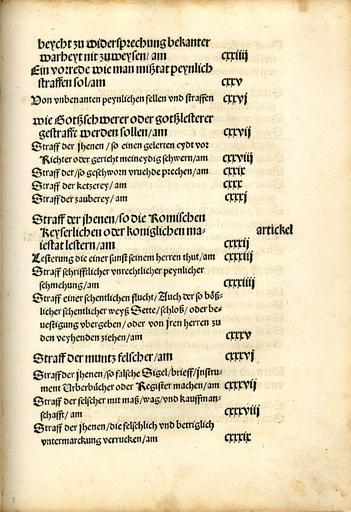 beycht zu widersprechung bekanter
warheyt nit zuweysen/am cxxiiij
Ein vorrede wie man mißtat peynlich
straffen sol/am cxxv
Von vnbenanten peynlichen fellen vnd straffen cxxvj
wie Gotßschwerer oder gotßlesterer
gestrafft werden sollen/am cxxvij
Straff der jhenen/so einen gelerten eydt vor
Richter oder gericht meineydig schwern/am cxxviij
Straff der/so geschworn vruehde prechen/am cxxix
Straff der ketzerey/am cxxx
Straff der zauberey/am cxxxj
Straff der jhenen/so die Romischen
Keyserlichen oder koniglichen ma- artickel
iestat lestern/am cxxxij
Lesterung die einer sunst seinem herren thut/am cxxxiij
Straff schrifftlicher vnrechtlicher peynlicher
schmehung/am cxxxiiij
Straff einer schentlichen flucht/Auch der so bößlicher
schentlicher weyß Stette/schloß/oder beuestigung
vbergeben/oder von jren herren zu
den veyhenden ziehen/am cxxxv
Straff der muntz felscher/am cxxxvj
Straff der jhenen/so falsche Sigel/brieff/jnstrument
Urberbücher oder Register machen/am cxxxvij
Straff der felscher mit maß/wag/vnd kauffmanschafft/am cxxxviij
Straff der jhenen/die felschlich vnd betriglich
vntermarckung verrucken/am cxxxix